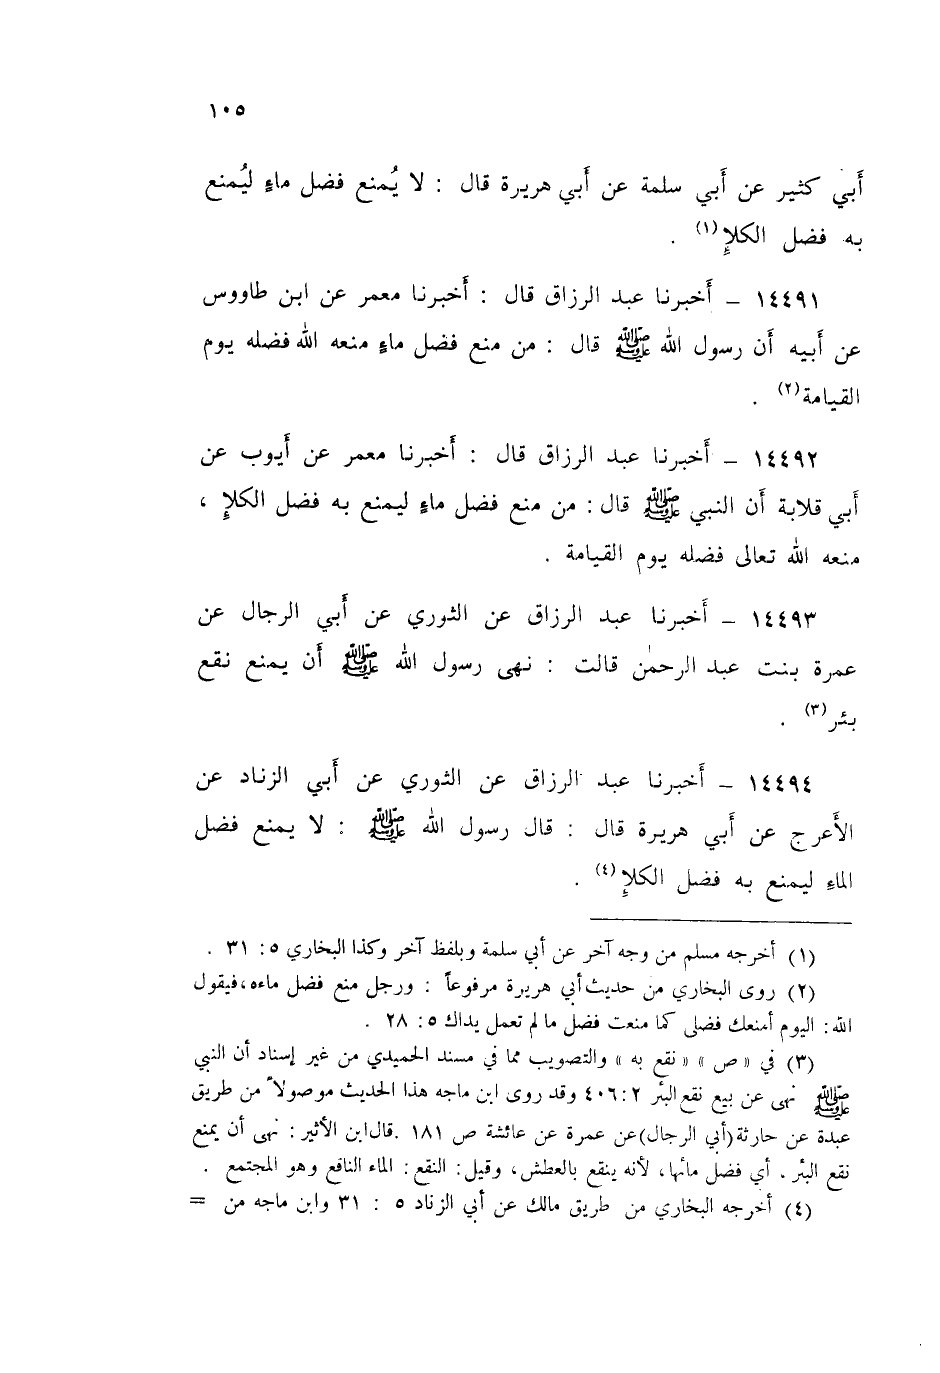 ١٠٥
أَبي كثير عن أَبي سلمة عن أَبي هريرة قال : لا يُمنع فضل ماءٍ ليُمنع
به فضل الكلإِ(١) .
١٤٤٩١ – أَخبرنا عبد الرزاق قال : أَخبرنا معمر عن ابن طاووس
عن أَبيه أَن رسول الله ﷺ قال : من منع فضل ماءٍ منعه الله فضله يوم
القيامة(٢) .
١٤٤٩٢ – أَخبرنا عبد الرزاق قال : أَخبرنا معمر عن أَيوب عن
أَبي قلابة أَن النبي ﷺ قال : من منع فضل ماءٍ ليمنع به فضل الكلإِ ،
منعه الله تعالى فضله يوم القيامة .
١٤٤٩٣ – أَخبرنا عبد الرزاق عن الثوري عن أَبي الرجال عن
عمرة بنت عبد الرحمٰن قالت : نهى رسول الله ﷺ أَن يمنع نقع
بئر(٣) .
١٤٤٩٤ – أَخبرنا عبد الرزاق عن الثوري عن أَبي الزناد عن
الأَعرج عن أَبي هريرة قال : قال رسول الله ﷺ : لا يمنع فضل
الماءِ ليمنع به فضل الكلإِ(٤) .
(١) أخرجه مسلم من وجه آخر عن أبي سلمة وبلفظ آخر وكذا البخاري ٥ : ٣١ .
(٢) روى البخاري من حديث أبي هريرة مرفوعاً : ورجل منع فضل ماءه ، فيقول
الله : اليوم أمنعك فضلى كما منعت فضل ما لم تعمل يداك ٥ : ٢٨ .
(٣) في « ص » « نقع به » والتصويب مما في مسند الحميدي من غير إسناد أن النبي
ﷺ نهى عن بيع نقع البئر ٢ : ٤٠٦ وقد روى ابن ماجه هذا الحديث موصولاً من طريق
عبدة عن حارثة (أبي الرجال) عن عمرة عن عائشة ص ١٨١ . قال ابن الأثير : نهى أن يمنع
نقع البئر . أي فضل مائها ، لأنه ينقع بالعطش ، وقيل : النقع : الماء الناقع وهو المجتمع .
(٤) أخرجه البخاري من طريق مالك عن أبي الزناد ٥ : ٣١ وابن ماجه من =